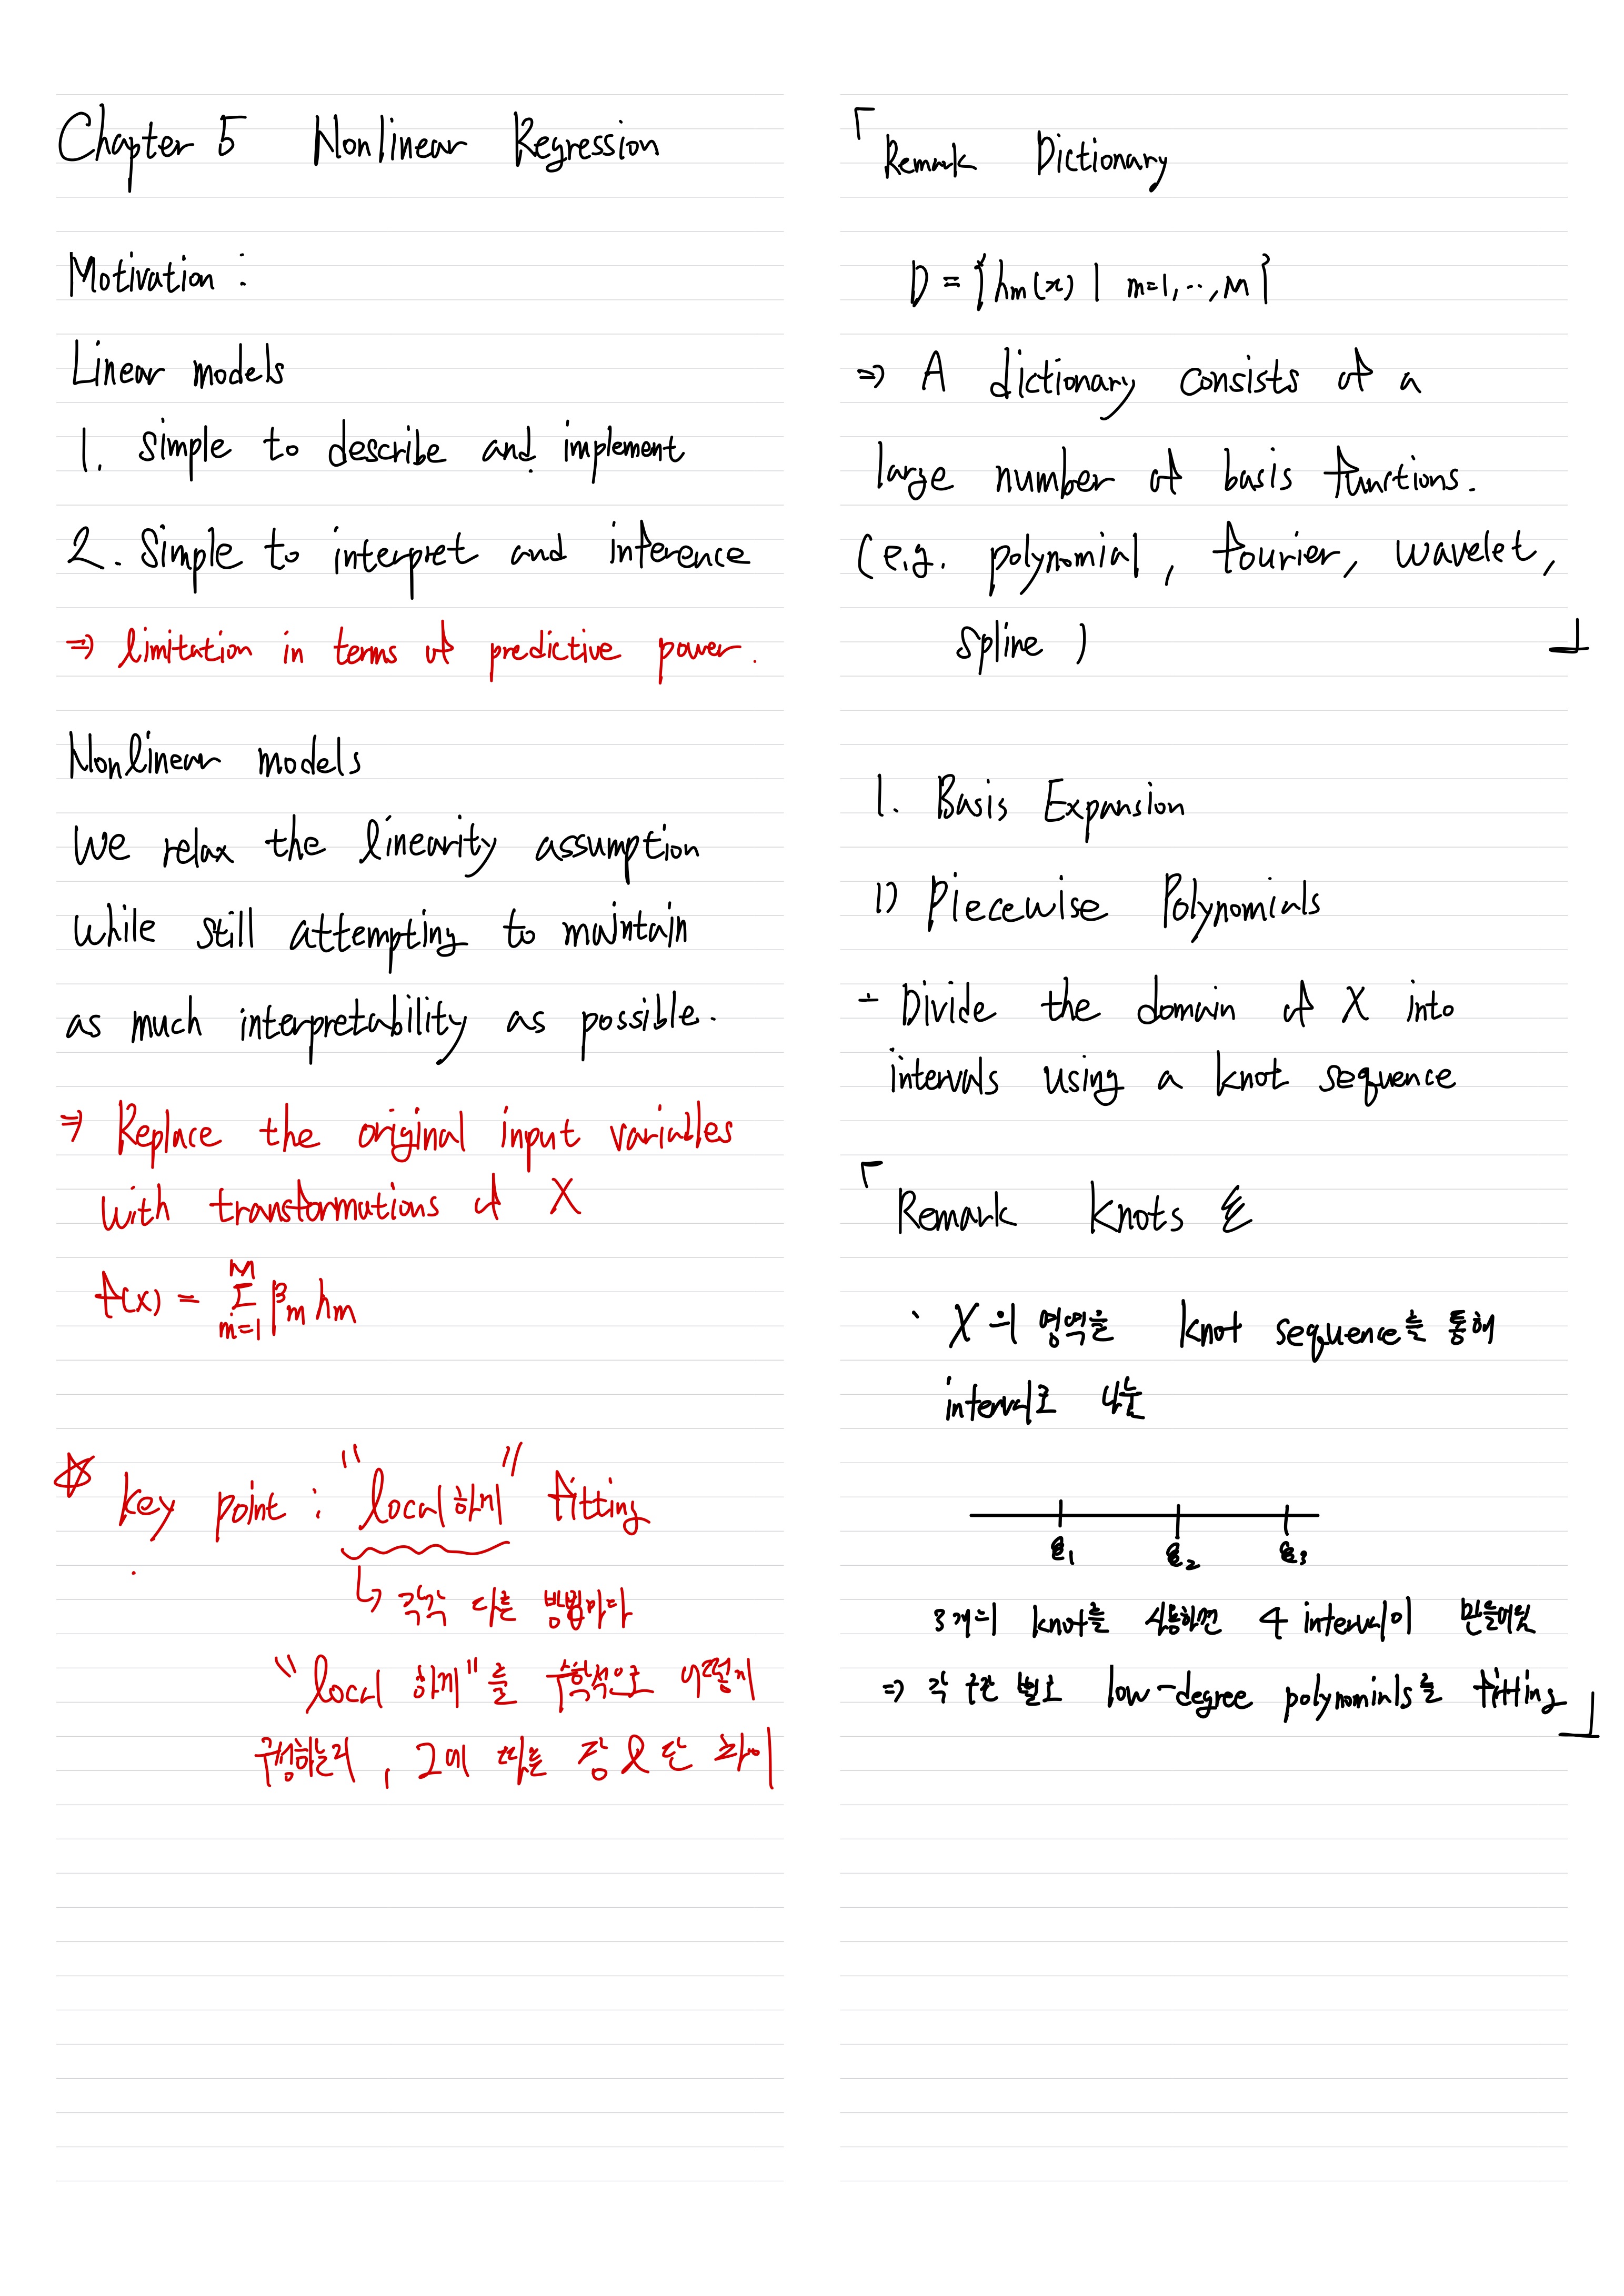 Chapter 5 Nonlinear Regression
Motivation :
Linear models
1. Simple to describe and implement
2. Simple to interpret and inference
⇒ limitation in terms of predictive power.
Nonlinear models
We relax the linearity assumption
while still attempting to maintain
as much interpretability as possible.
⇒ Replace the original input variables
with transformations of X
f(x) = Σ_{m=1}^{M} β_m h_m
☆ key point : "local하게" fitting
↳ 각각 다른 방법마다
"local 하게"를 수학적으로 어떻게
구성하는지, 그에 따른 장 & 단 차이
「Remark Dictionary
D = { h_m(x) | m=1, ..., M }
⇒ A dictionary consists of a
large number of basis functions.
(e.g. polynomial, fourier, wavelet,
spline ) 」
1. Basis Expansion
1) Piecewise Polynomials
- Divide the domain of X into
intervals using a knot sequence
「Remark Knots ξ
· X의 영역을 knot sequence를 통해
interval로 나눔
ξ₁ ξ₂ ξ₃
3개의 knot를 사용하면 4 interval이 만들어짐
⇒ 각 구간 별로 low-degree polynomials를 fitting 」